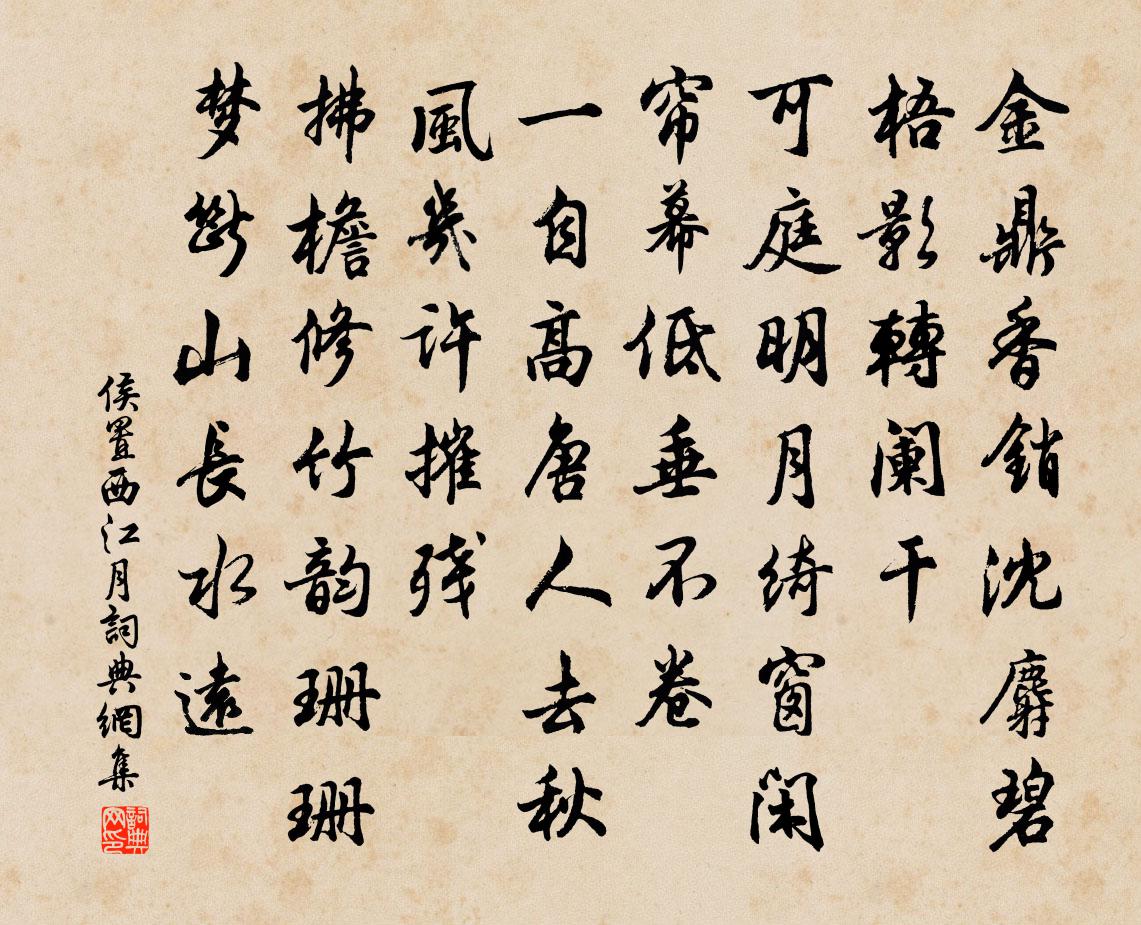 金鼎香銷沈麝碧
梧影轉闌干
可庭明月綺窗閑
帘幕低垂不卷
一自高唐人去秋
風幾許摧殘
拂檐修竹韵珊珊
梦斷山長水遠
侯置西江月詞典網集
詞典网印